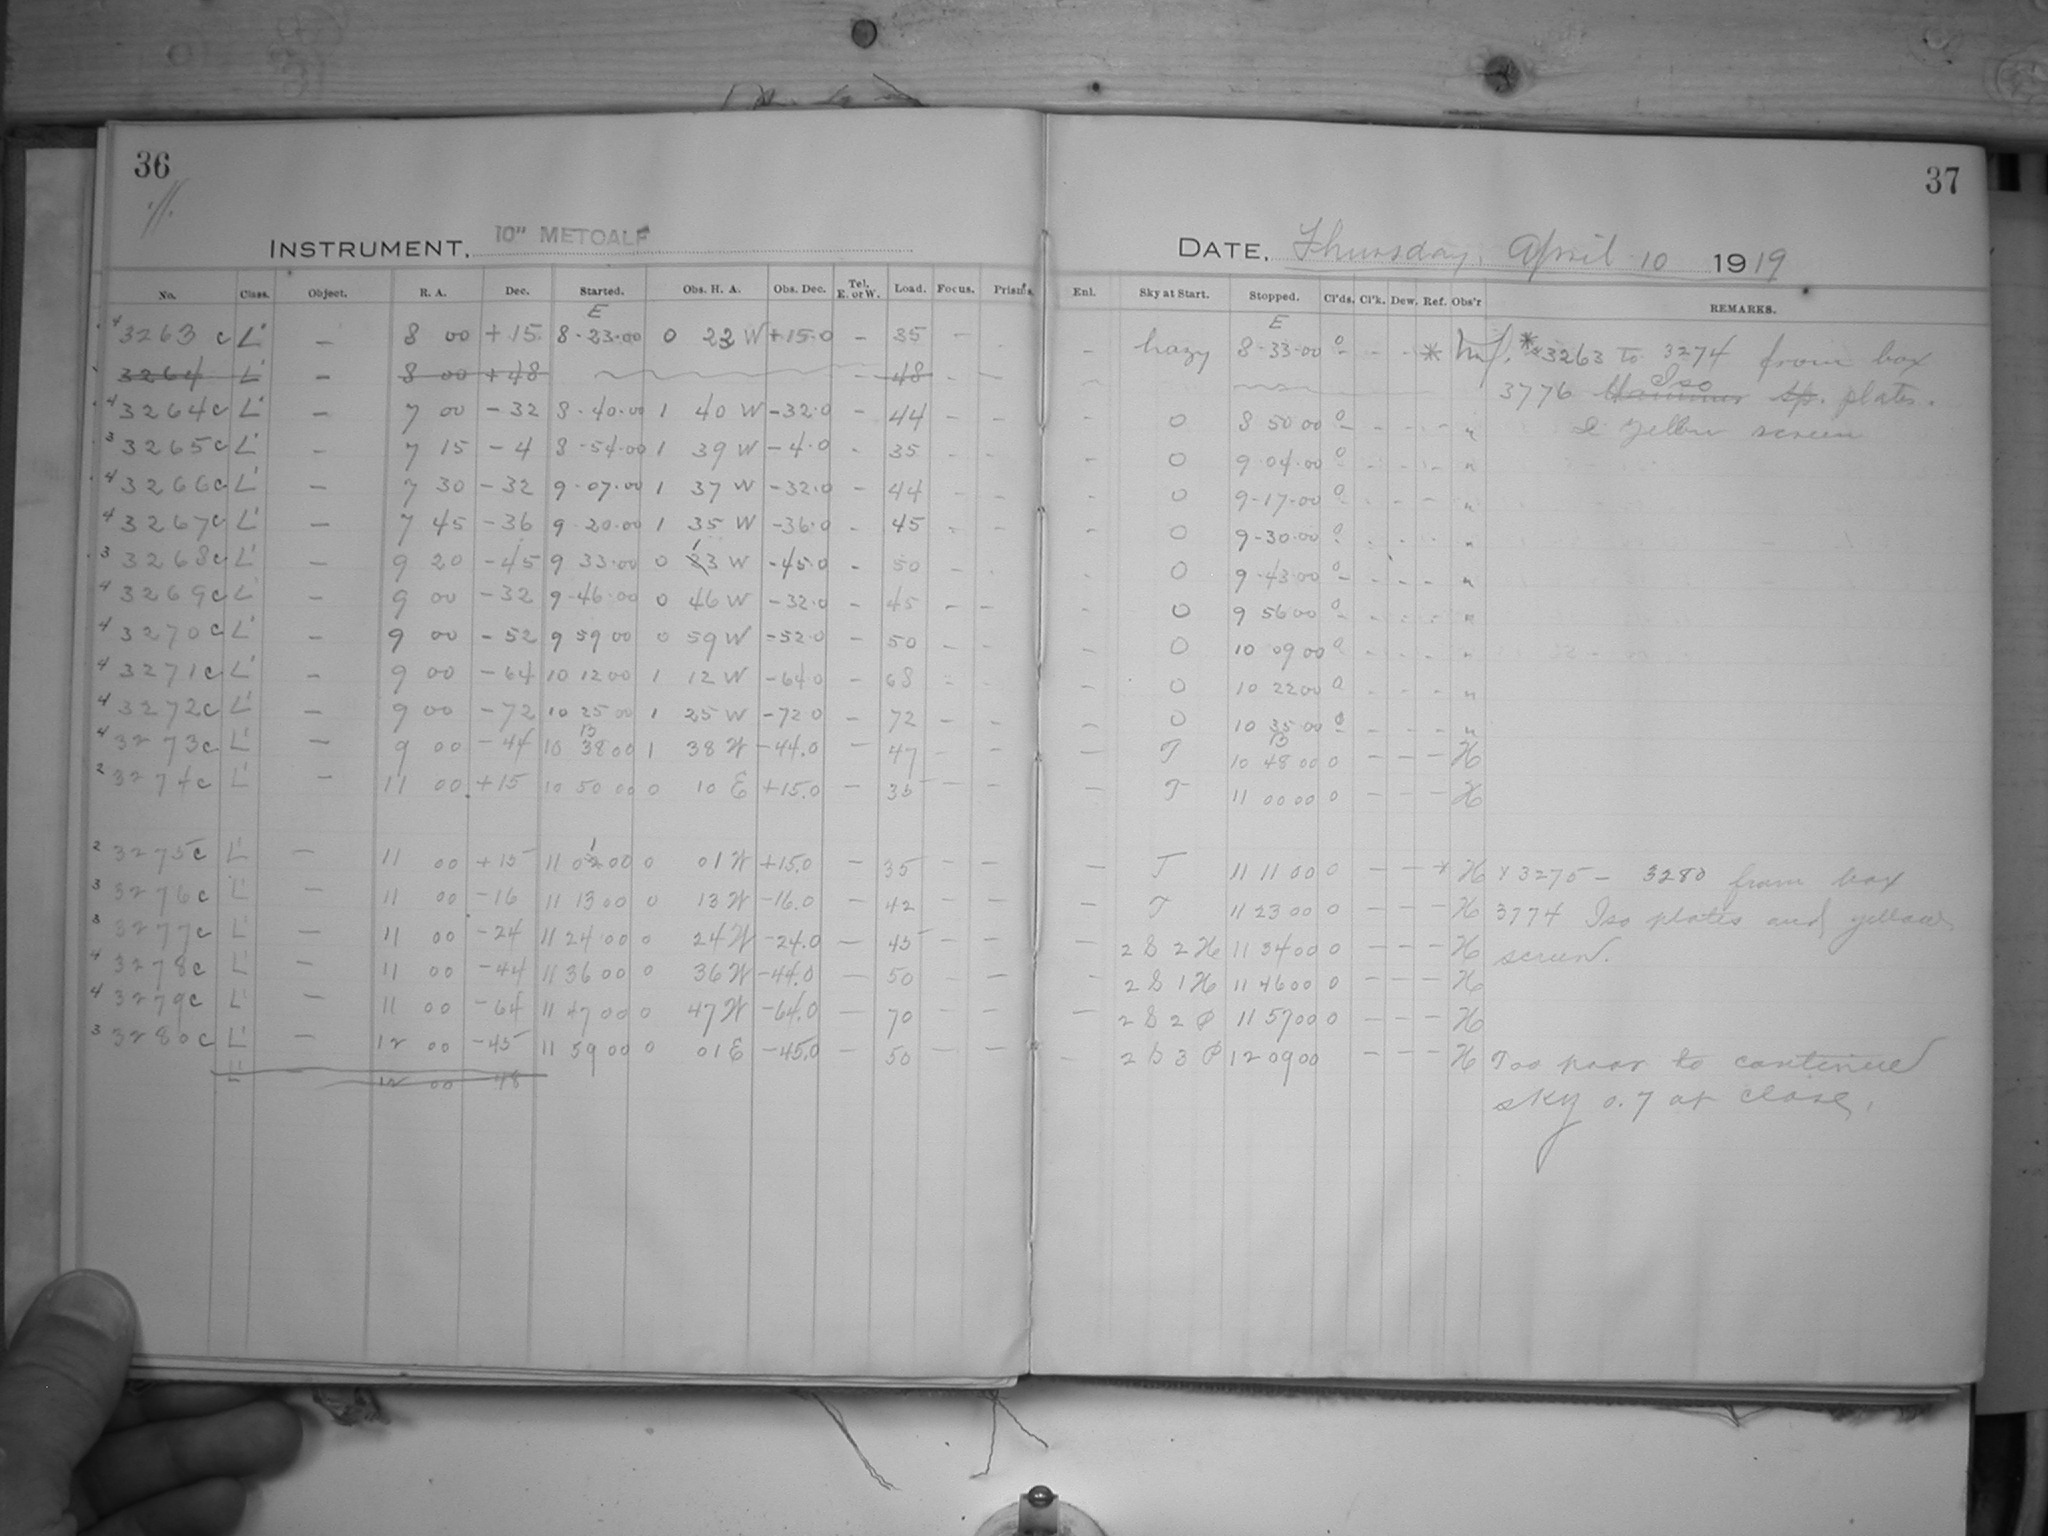 36
INSTRUMENT. 10" METCALF
No. Class. Object. R. A. Dec. Started. Obs. H. A. Obs. Dec. Tel. E. or W. Load. Focus. Prisms.
E
4 3263 c L' — 8 00 +15 8-23-00 0 23 W +15.0 – 35 –
3264 L' — 8 00 +48 – 48 – –
4 3264c L' — 7 00 -32 8-40-00 1 40 W -32.0 – 44 – –
3 3265c L' — 7 15 -4 8-54-00 1 39 W -4.0 – 35 – –
4 3266c L' — 7 30 -32 9-07-00 1 37 W -32.0 – 44 – –
4 3267c L' — 7 45 -36 9 20-00 1 35 W -36.0 – 45 – –
3 3268c L' — 9 20 -45 9 33-00 0 13 W -45.0 – 50 – –
4 3269c L' — 9 00 -32 9-46-00 0 46 W -32.0 – 45 – –
4 3270c L' — 9 00 -52 9 59 00 0 59 W -52.0 – 50 – –
4 3271c L' — 9 00 -64 10 12 00 1 12 W -64.0 – 68 – –
4 3272c L' — 9 00 -72 10 25 00 1 25 W -72.0 – 72 – –
4 3273c L' — 9 00 -44 10 38 00 1 38 W -44.0 – 47 – –
2 3274c L' — 11 00 +15 10 50 00 0 10 E +15.0 – 35 – –
2 3275c L' — 11 00 +15 11 01 00 0 01 W +15.0 – 35 – –
3 3276c L' — 11 00 -16 11 13 00 0 13 W -16.0 – 42 – –
3 3277c L' — 11 00 -24 11 24 00 0 24 W -24.0 – 45 – –
4 3278c L' — 11 00 -44 11 36 00 0 36 W -44.0 – 50 – –
4 3279c L' — 11 00 -64 11 47 00 0 47 W -64.0 – 70 – –
3 3280c L' — 12 00 -45 11 59 00 0 01 E -45.0 – 50 – –
L' 12 00 48
37
DATE. Thursday, April 10 1919
Enl. Sky at Start. Stopped. Cl'ds. Cl'k. Dew. Ref. Obs'r REMARKS.
E
– hazy 8-33-00 0 – – * * 3263 to 3274 from box
3776 Iso sp. plates.
& Yellow screen
– 0 8 50 00 0 – – – "
– 0 9-04-00 0 – – – "
– 0 9-17-00 0 – – – "
– 0 9-30-00 0 – – – "
– 0 9-43-00 0 – – – "
– 0 9 56 00 0 – – – "
– 0 10 09 00 0 – – – "
– 0 10 22 00 0 – – – "
– 0 10 35 00 0 – – – "
– T 10 48 00 0 – – – H
– T 11 00 00 0 – – – H
– T 11 11 00 0 – – * H * 3275 – 3280 from box
– T 11 23 00 0 – – – H 3774 Iso plates and yellow
– 2 S 2 H 11 34 00 0 – – – H screen.
– 2 S 1 H 11 46 00 0 – – – H
– 2 S 2 P 11 57 00 0 – – – H
– 2 S 3 P 12 09 00 – – – H Too poor to continue
sky 0.7 at close.